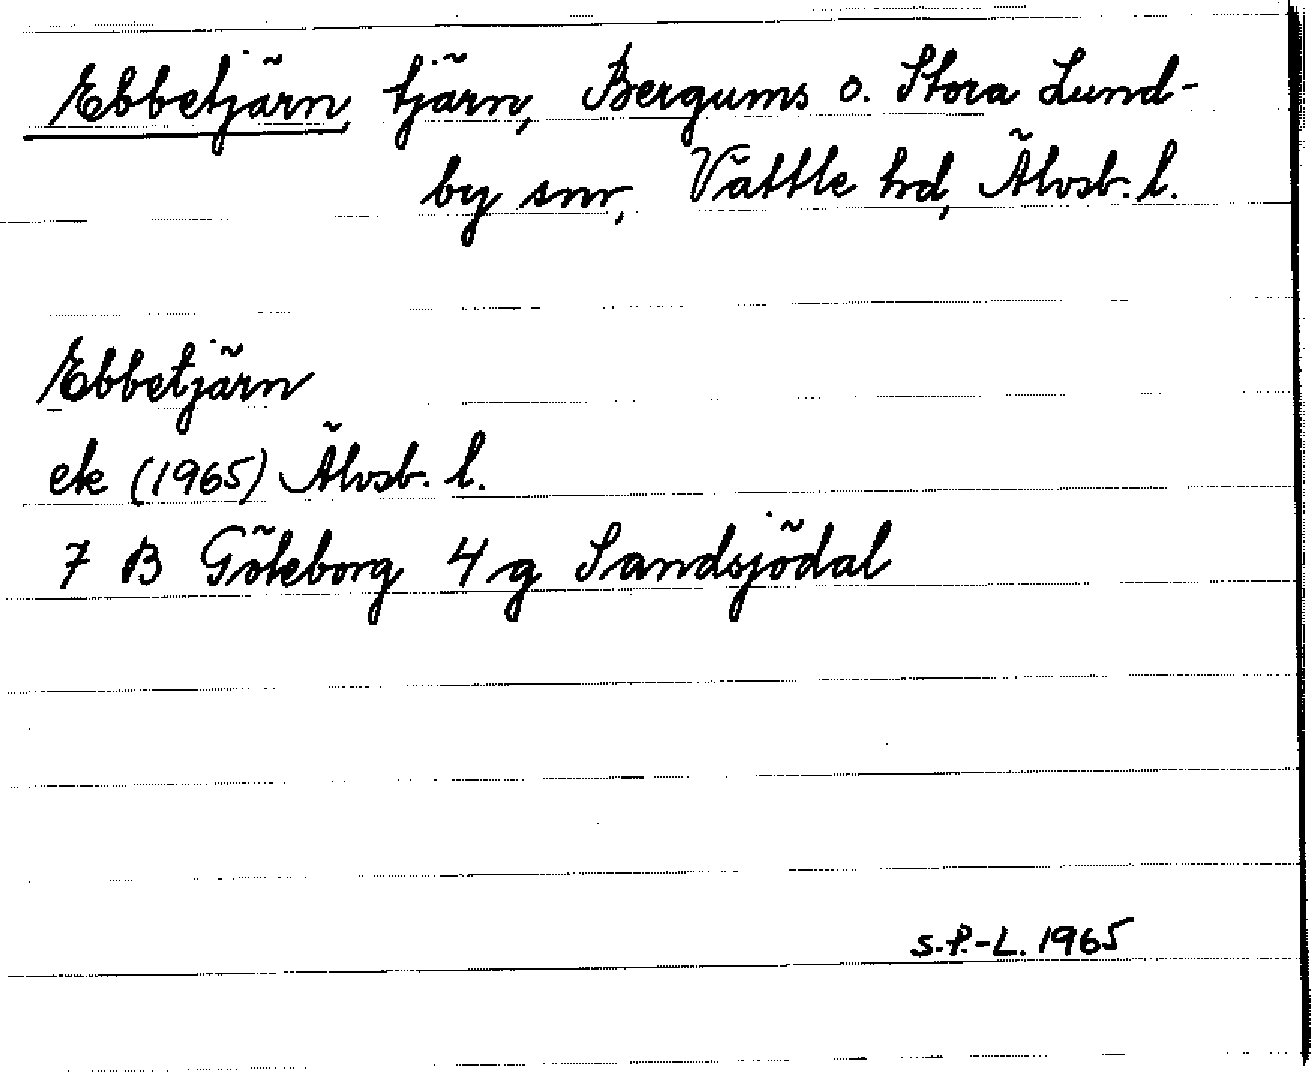 Ebbetjärn, tjärn, Bergums o. Stora Lund-
by snr, Vättle hd, Älvsb. l.
Ebbetjärn
ek (1965) Älvsb. l.
7 B Göteborg 4 g Sandsjödal
S.P.-L. 1965